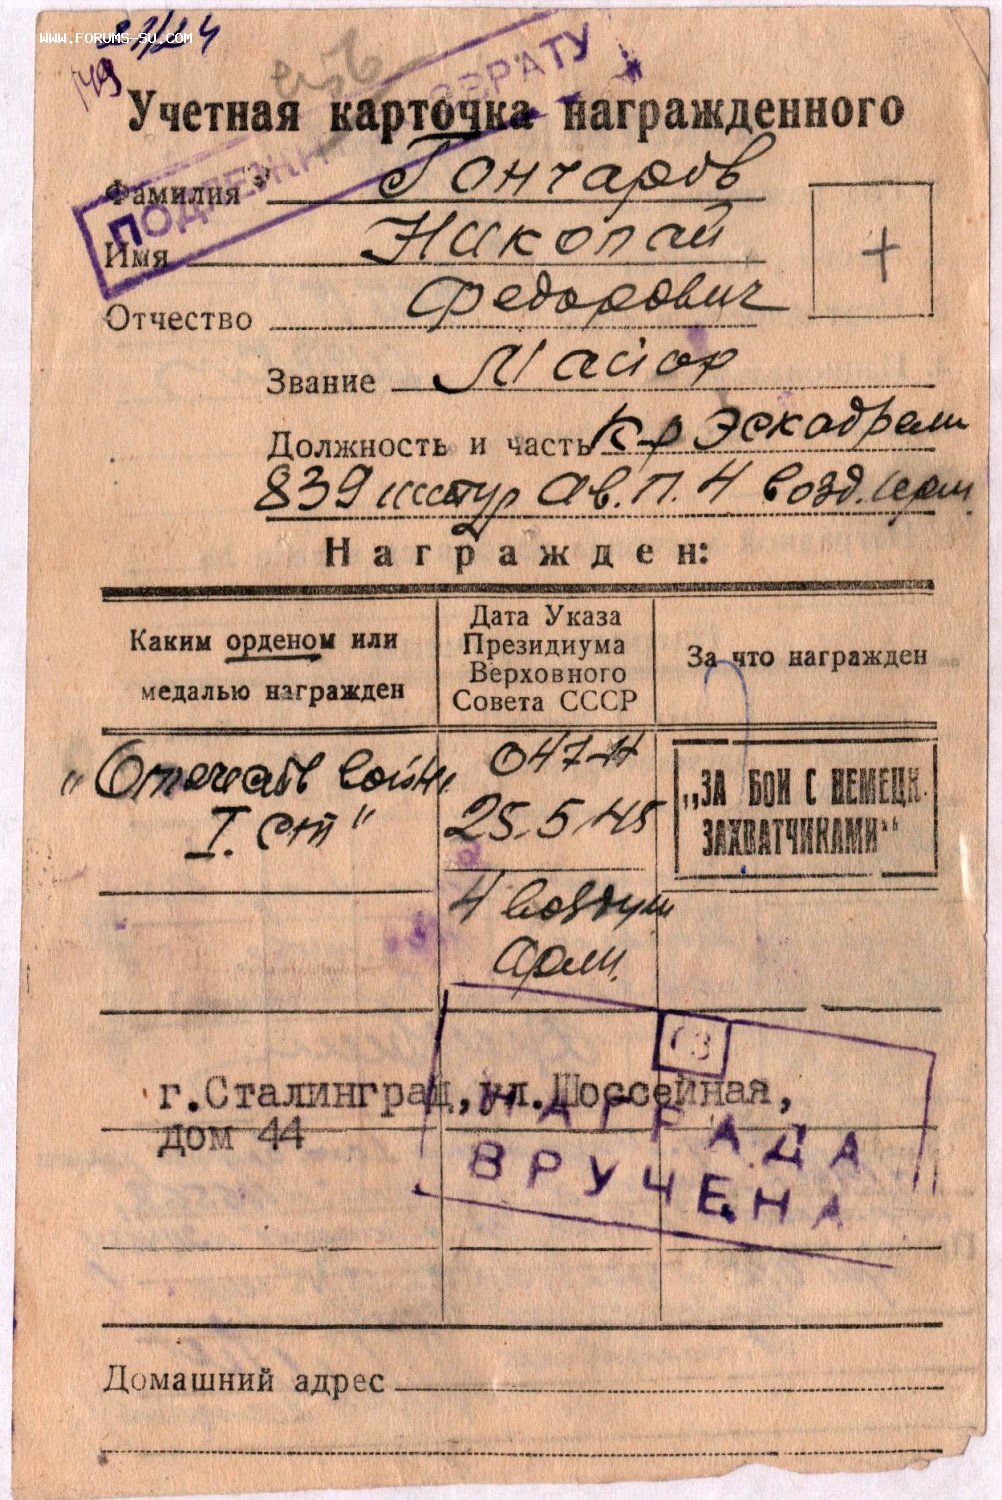 WWW.FORUMS-SU.COM
149
Учетная карточка награжденного
ПОДЛЕЖИТ ВОЗВРАТУ
Фамилия Гончаров
Имя Николай
+
Отчество Федорович
Звание Майор
Должность и часть К-р Эскадрели
839 штур ав. п. 4 возд. арм.
Награжден:
Каким орденом или медалью награжден
Дата Указа Президиума Верховного Совета СССР
За что награжден
„Отечеств войны I. ст"
047-Н
25.5.45
4 воздуш
арм.
„ЗА БОИ С НЕМЕЦК.
ЗАХВАТЧИКАМИ"
г.Сталинград, ул.Шоссейная,
дом 44
НАГРАДА
ВРУЧЕНА
Домашний адрес